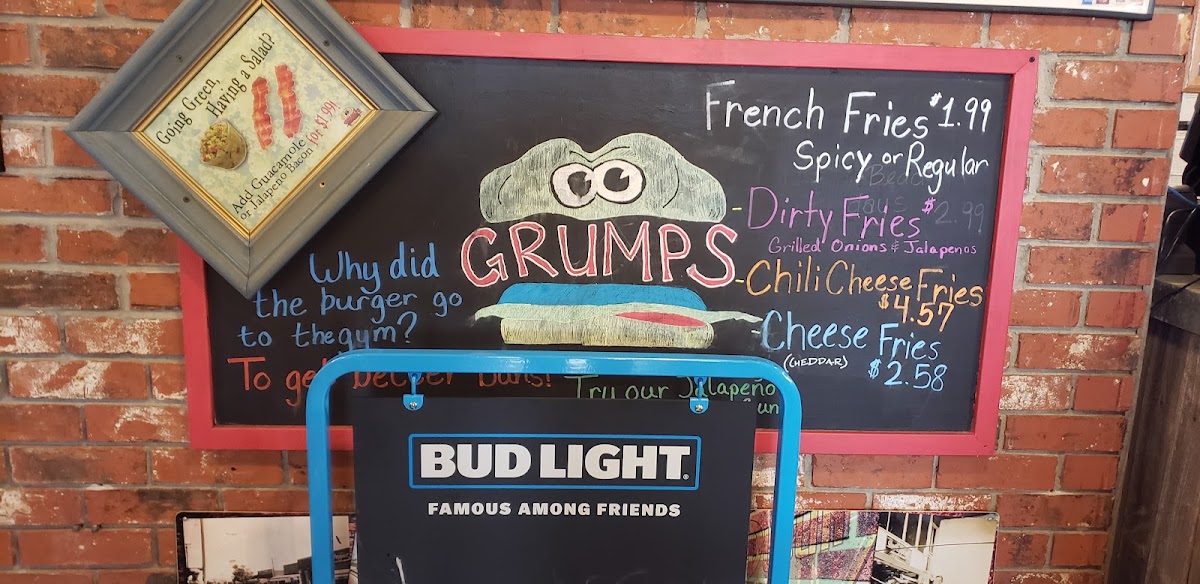 Going Green,
Having a Salad?
Add Guacamole
or Jalapeño Bacon for $1.99!
GRUMPS
Why did
the burger go
to the gym?
To get better buns!
Try our Jalapeño
French Fries $1.99
Spicy or Regular
Dirty Fries $2.99
Grilled Onions & Jalapenos
Chili Cheese Fries
$4.57
Cheese Fries
(CHEDDAR)
$2.58
BUD LIGHT
FAMOUS AMONG FRIENDS